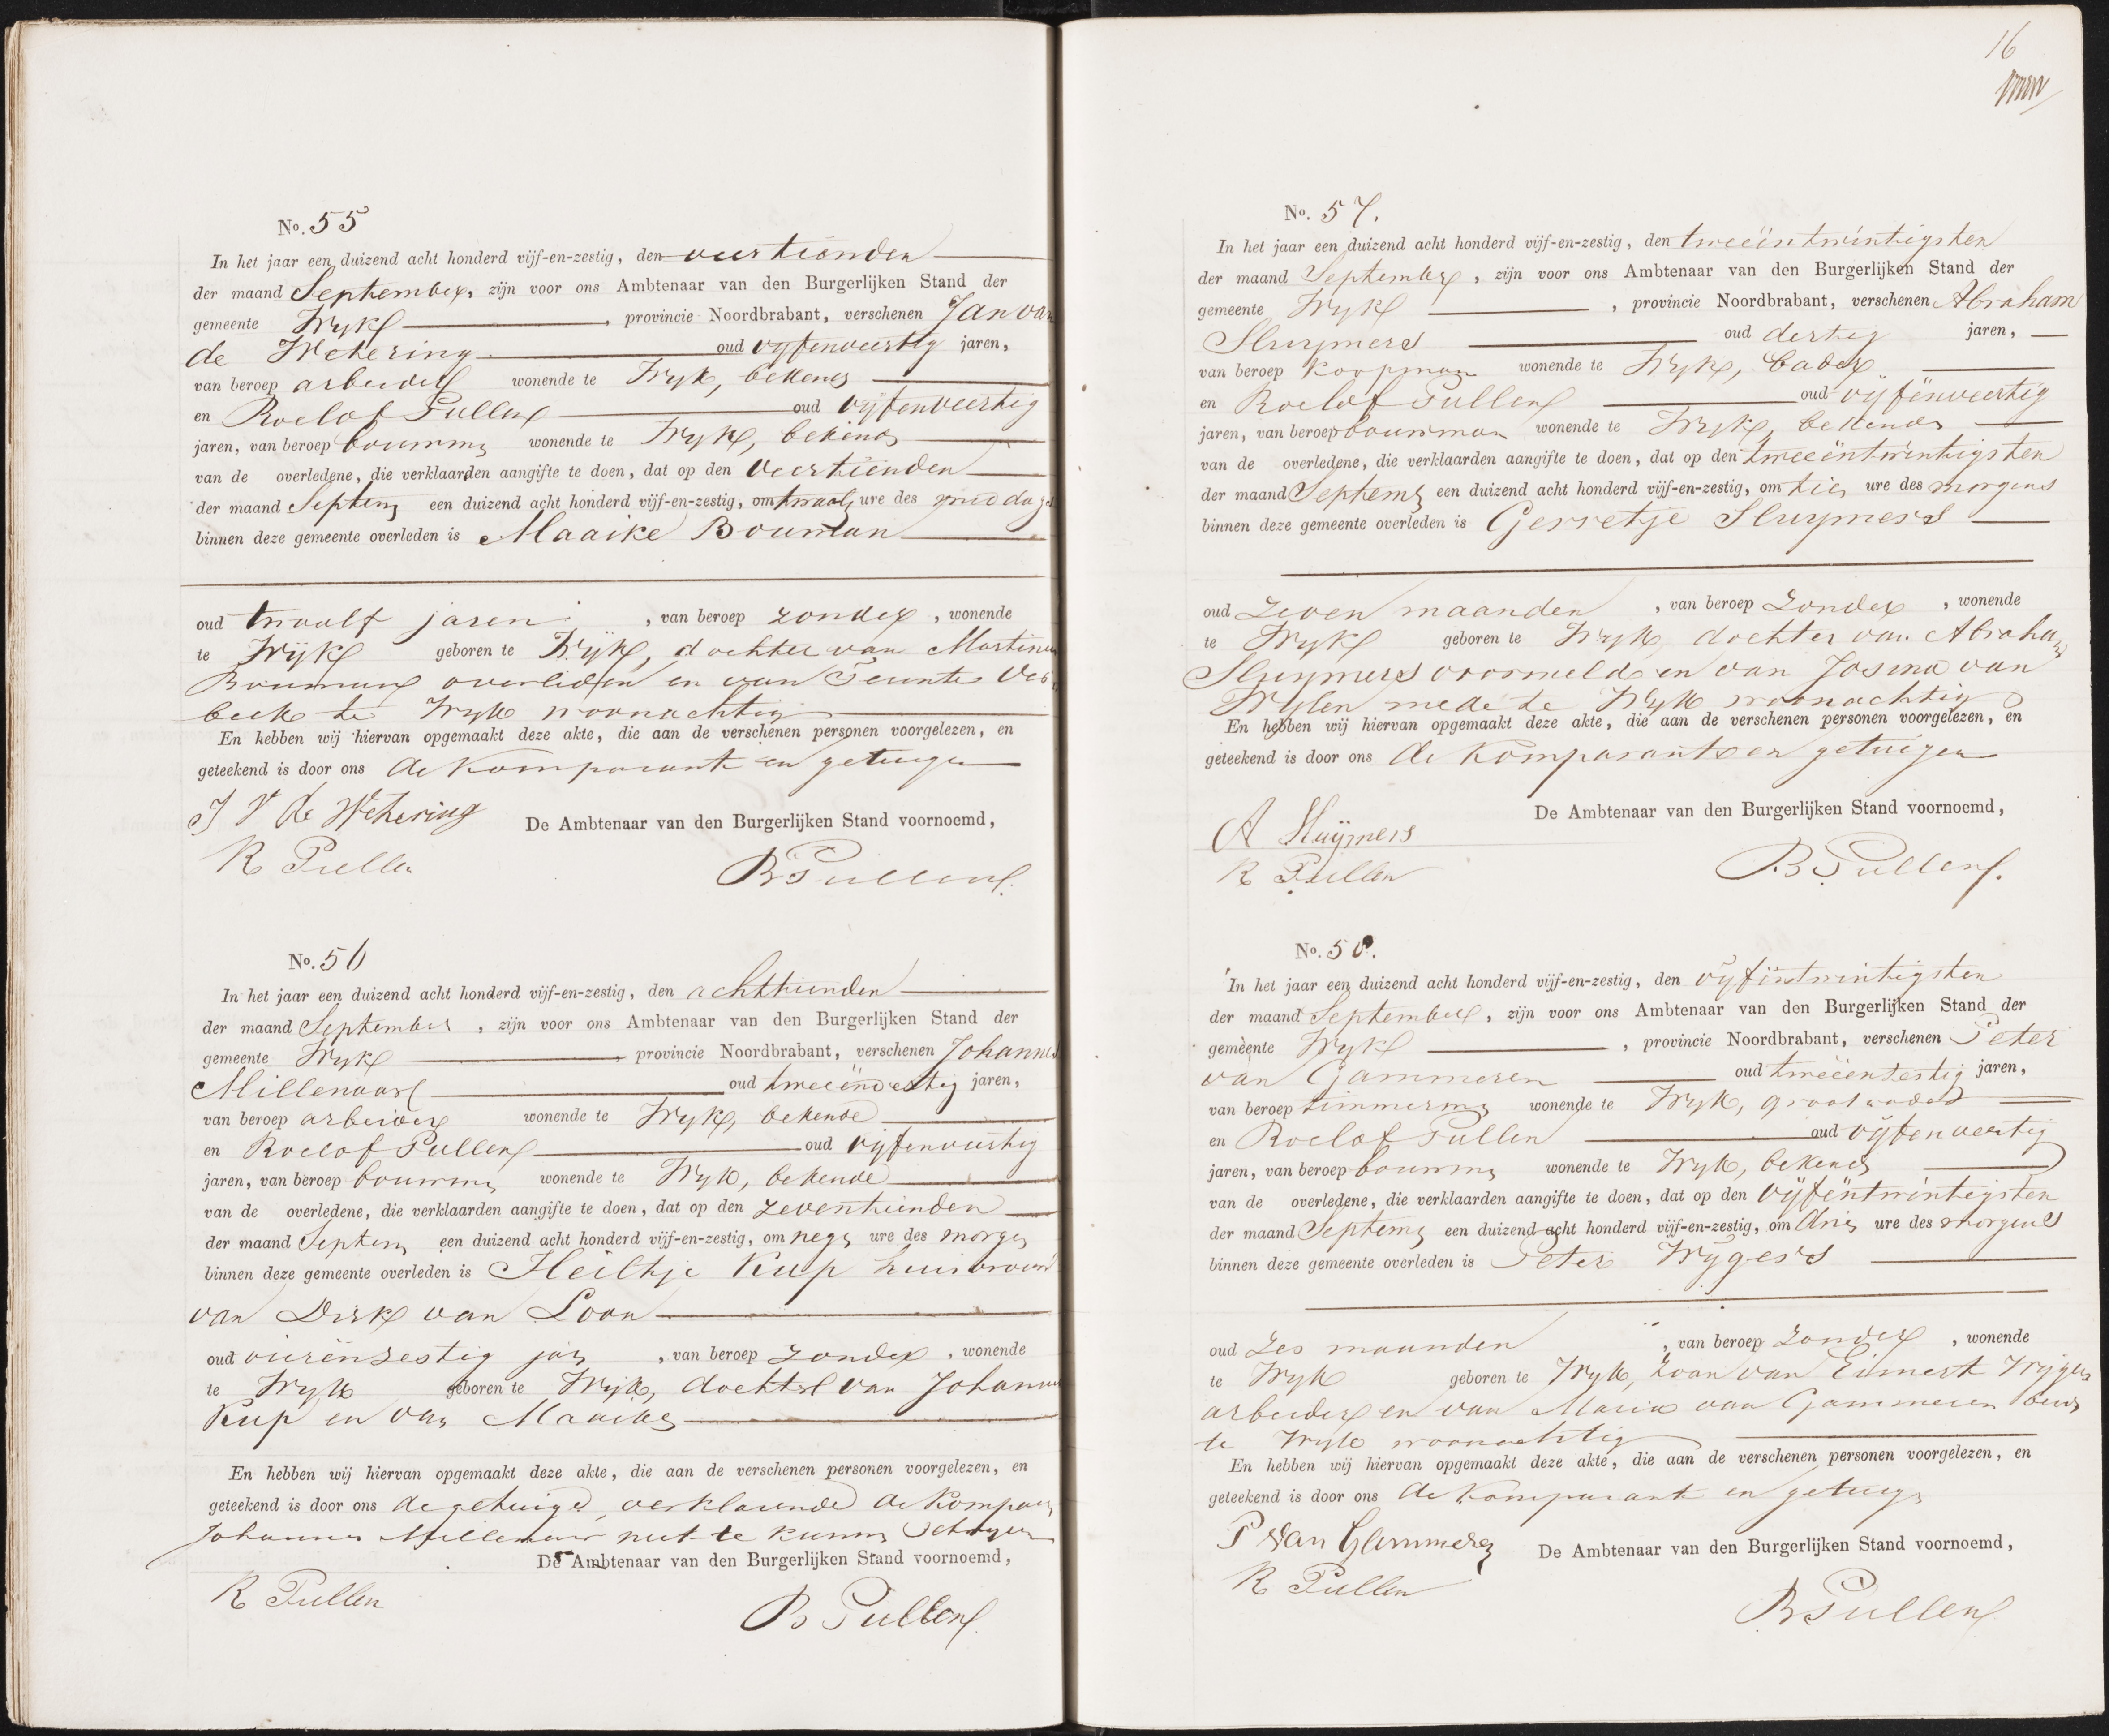 No. 55
In het jaar een duizend acht honderd vijf-en-zestig, den veertienden
der maand September, zijn voor ons Ambtenaar van den Burgerlijken Stand der
gemeente Wyk, provincie Noordbrabant, verschenen Jan van
de Wetering oud vyfenveertig jaren,
van beroep arbeider wonende te Wyk, bekende
en Roelof Pullen oud vyfenveertig
jaren, van beroep bouwm wonende te Wyk, bekende
van de overledene, die verklaarden aangifte te doen, dat op den Veertienden
der maand Septem een duizend acht honderd vijf-en-zestig, om twaalf ure des middags
binnen deze gemeente overleden is Maaike Bouman
oud twaalf jaren, van beroep zonder, wonende
te Wyk geboren te Wyk, dochter van Martinus
Bouman overleden en van Teuntje Ver
beek te Wyk woonachtig
En hebben wij hiervan opgemaakt deze akte, die aan de verschenen personen voorgelezen, en
geteekend is door ons de komparant en getuigen
J V de Wetering De Ambtenaar van den Burgerlijken Stand voornoemd,
R Pullen B Pullen
No. 56
In het jaar een duizend acht honderd vijf-en-zestig, den achttienden
der maand September, zijn voor ons Ambtenaar van den Burgerlijken Stand der
gemeente Wyk, provincie Noordbrabant, verschenen Johannes
Millenaar oud jaren,
van beroep arbeider wonende te Wyk, bekende
en Roelof Pullen oud vyfenveertig
jaren, van beroep bouwm wonende te Wyk, bekende
van de overledene, die verklaarden aangifte te doen, dat op den zeventienden
der maand Septem een duizend acht honderd vijf-en-zestig, om nege ure des morgen
binnen deze gemeente overleden is Heiltje Kup huisvrouw
van Dirk van Loon
oud vierenzestig jar, van beroep zonder, wonende
te Wyk geboren te Wyk, dochter van Johannes
Kup en van Maaike
En hebben wij hiervan opgemaakt deze akte, die aan de verschenen personen voorgelezen, en
geteekend is door ons de getuige, verklarende de kompar
Johannes Millenaar niet te kunn schryven
De Ambtenaar van den Burgerlijken Stand voornoemd,
R Pullen B Pullen
16
No. 57.
In het jaar een duizend acht honderd vijf-en-zestig, den tweeëntwintigsten
der maand September, zijn voor ons Ambtenaar van den Burgerlijken Stand der
gemeente Wyk, provincie Noordbrabant, verschenen Abraham
Sluymers oud dertig jaren,
van beroep koopman wonende te Wyk, vader
en Roelof Pullen oud vyfenveertig
jaren, van beroep bouwman wonende te Wyk, bekende
van de overledene, die verklaarden aangifte te doen, dat op den tweeëntwintigsten
der maand Septem een duizend acht honderd vijf-en-zestig, om tien ure des morgens
binnen deze gemeente overleden is Gerretje Sluymers
oud zeven maanden, van beroep zonder, wonende
te Wyk geboren te Wyk, dochter van Abraham
Sluymers voormeld en van Josina van
Wylen mede te Wyk woonachtig
En hebben wij hiervan opgemaakt deze akte, die aan de verschenen personen voorgelezen, en
geteekend is door ons de komparant en getuigen
De Ambtenaar van den Burgerlijken Stand voornoemd,
A Sluijmers
R Pullen B Pullen.
No. 58.
In het jaar een duizend acht honderd vijf-en-zestig, den vyfentwintigsten
der maand September, zijn voor ons Ambtenaar van den Burgerlijken Stand der
gemeente Wyk, provincie Noordbrabant, verschenen Peter
van Gammeren oud tweeënzestig jaren,
van beroep timmerm wonende te Wyk, grootvader
en Roelof Pullen oud vyfenveertig
jaren, van beroep bouwm wonende te Wyk, bekende
van de overledene, die verklaarden aangifte te doen, dat op den vyfentwintigsten
der maand Septem een duizend acht honderd vijf-en-zestig, om drie ure des morgens
binnen deze gemeente overleden is Peter Wygers
oud zes maanden, van beroep zonder, wonende
te Wyk geboren te Wyk, zoon van Eimert Wygers
arbeider en van Maria van Gammeren beide
te Wyk woonachtig
En hebben wij hiervan opgemaakt deze akte, die aan de verschenen personen voorgelezen, en
geteekend is door ons de komparant en getuige
P van Gammeren De Ambtenaar van den Burgerlijken Stand voornoemd,
R Pullen B Pullen